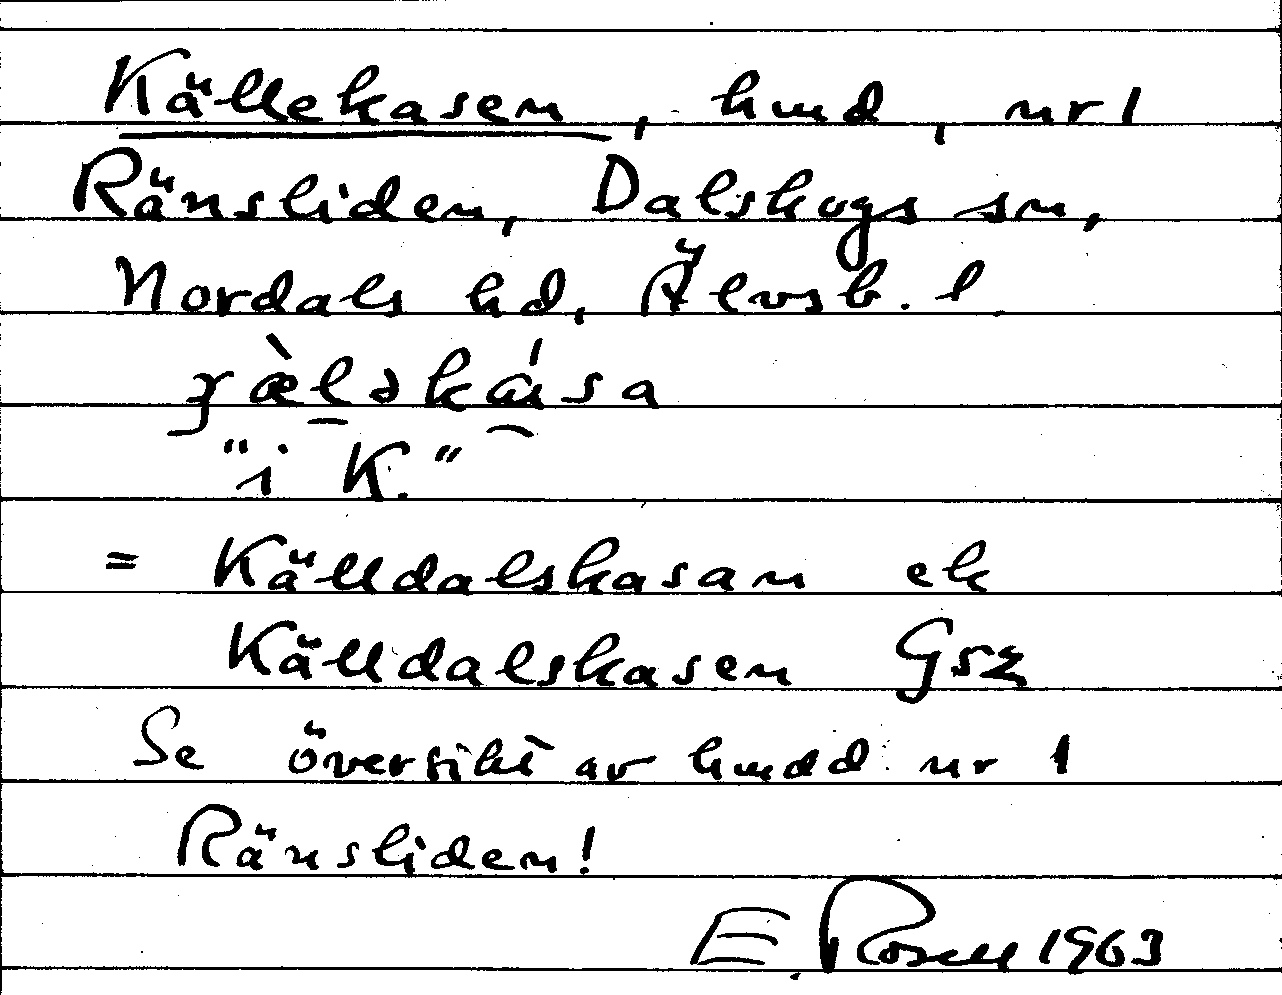 Källekasen, hmd, nr 1
Ränsliden, Dalskogs sn,
Nordals hd, Älvsb. l.
"i K."
= Källdalskasan ek
Källdalskasen Gsz
Se översikt av hmdd nr 1
Ränsliden!
E. Rosell 1963